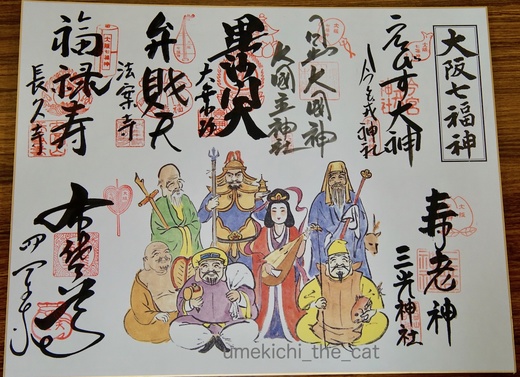 大阪七福神
ゑびす大神
今宮戎神社
日出大國神
大國主神社
毘沙門天
大乗坊
弁財天
法案寺
福禄寿
長久寺
寿老神
三光神社
布袋尊
四天王寺
umekichi_the_cat